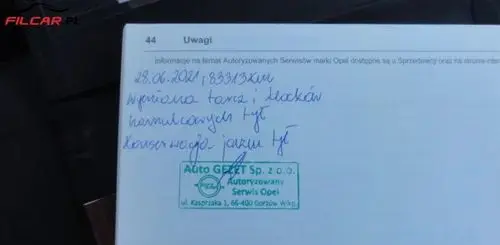 FILCAR.PL
44 Uwagi
Informacje na temat Autoryzowanych Serwisów marki Opel dostępne są u Sprzedawcy oraz na stronie
28.06.2021, 83313km
Wymiana tarcz i klocków
hamulcowych tył
Konserwacja jarzm tył
Auto GEZET Sp. z o.o.
Autoryzowany
Serwis Opel
ul. Kasprzaka 1, 66-400 Gorzów Wlkp.